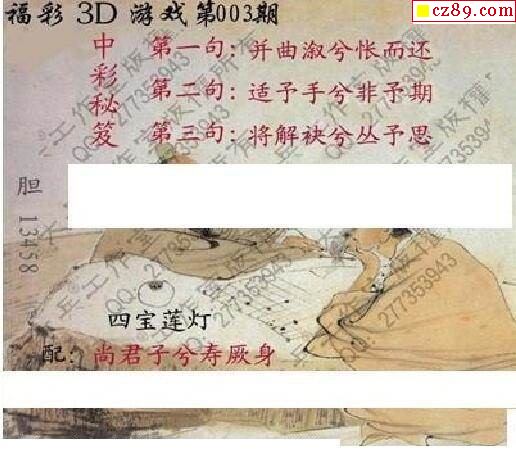 福彩 3D 游戏第003期
cz89.com
中彩秘笈
第一句：并曲溆兮怅而还
第二句：适予手兮非予期
第三句：将解袂兮丛予思
胆 13458
四宝莲灯
配：尚君子兮寿厥身
兵工作室版權所有
QQ:277353943